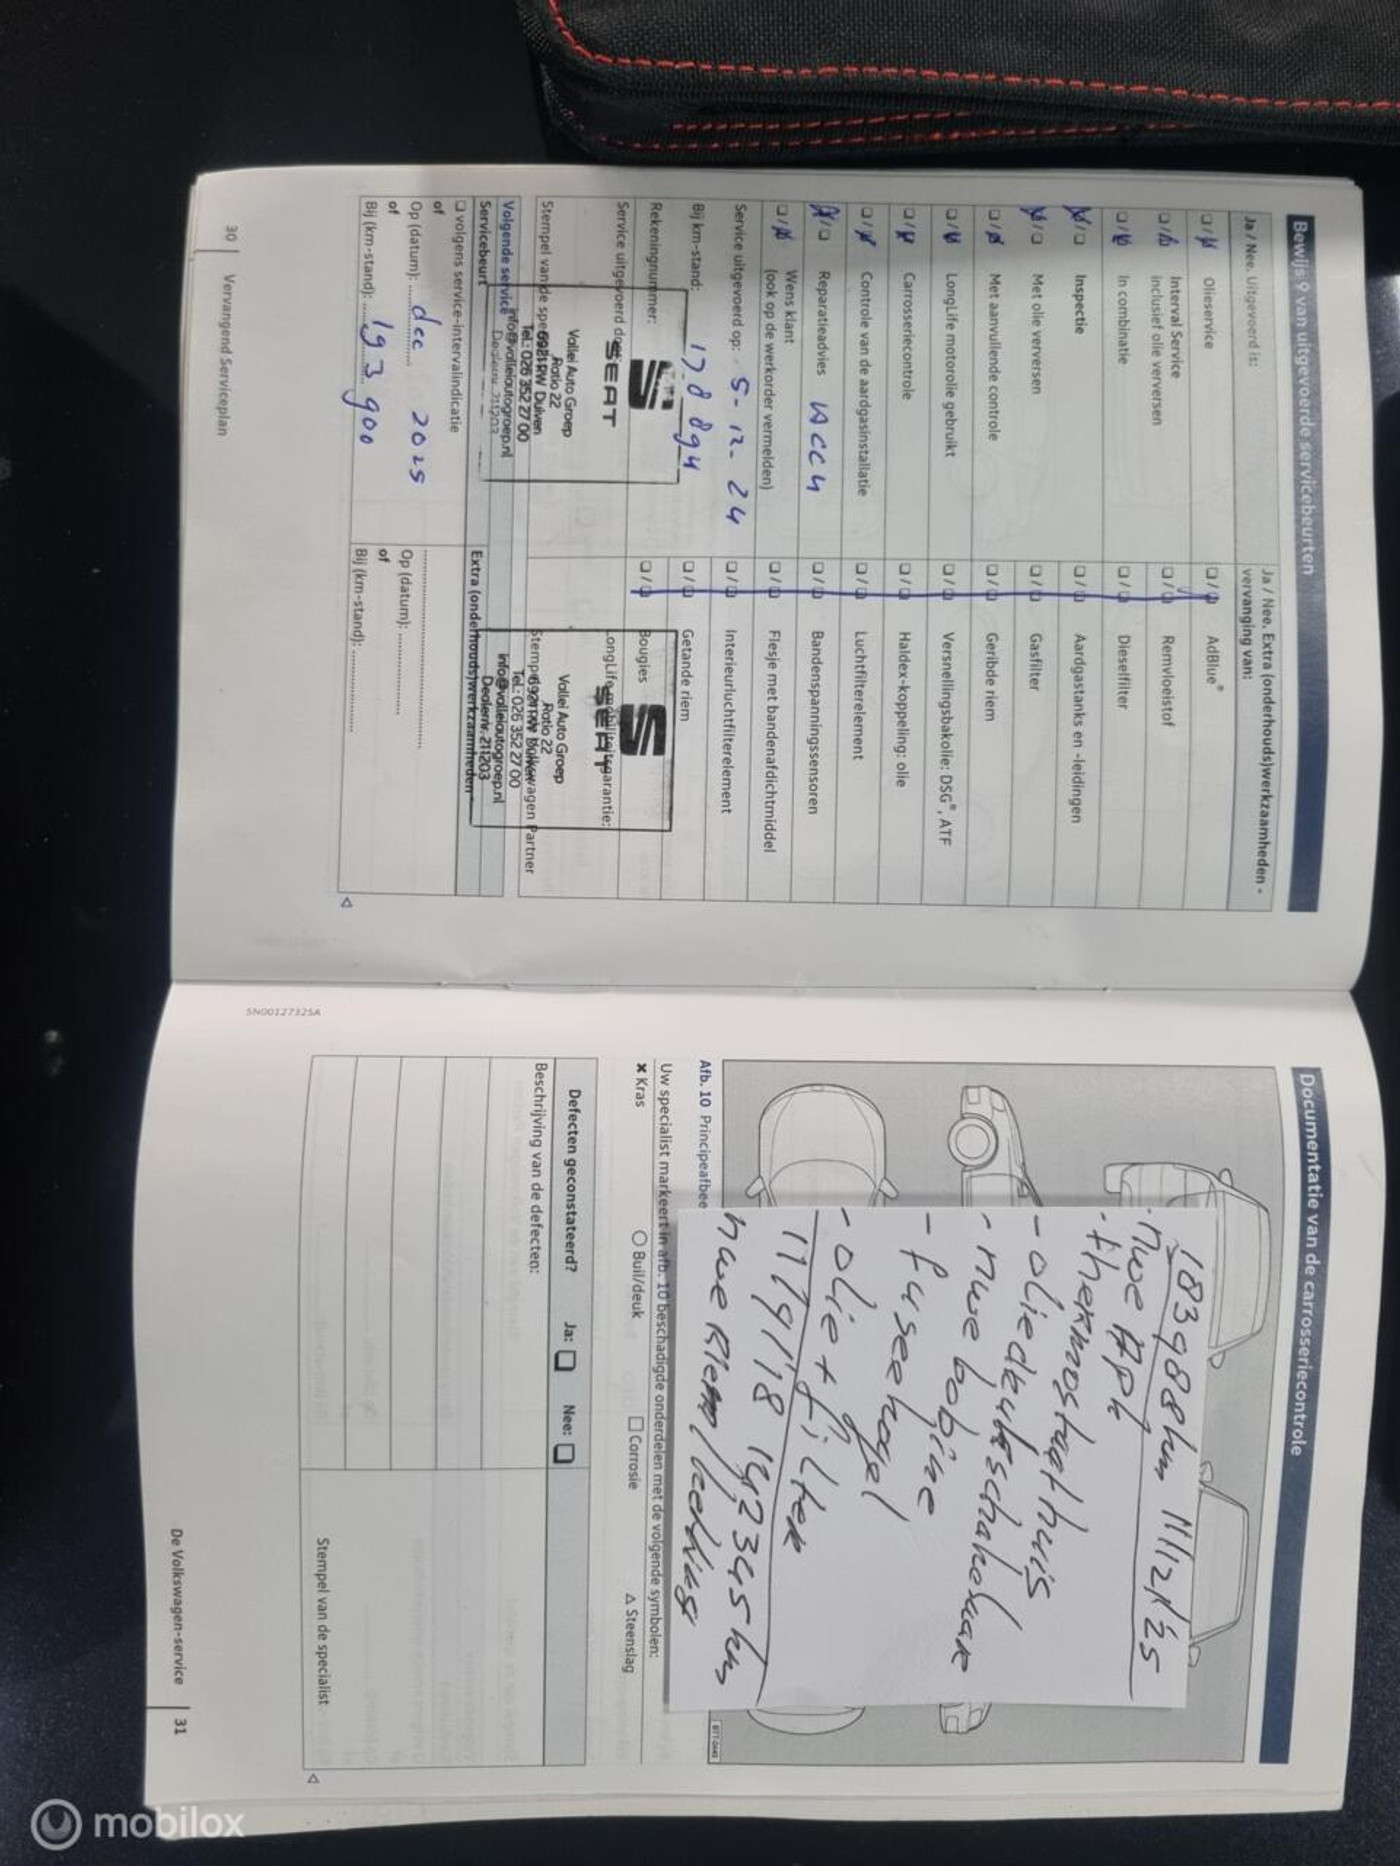 Bewijs 9 van uitgevoerde servicebeurten
Ja / Nee. Uitgevoerd is:
Olieservice
Interval Service
inclusief olie verversen
In combinatie
Inspectie
Met olie verversen
Met aanvullende controle
LongLife motorolie gebruikt
Carrosseriecontrole
Controle van de aardgasinstallatie
Reparatieadvies
Wens klant
(ook op de werkorder vermelden)
Service uitgevoerd op: 5-12-24
Bij km-stand: 178894
Rekeningnummer:
Service uitgevoerd door:
SEAT
Vallei Auto Groep
Ratio 22
6921 RW Duiven
Tel.: 026 352 27 00
info@valleiautogroep.nl
Dealernr. 211203
Volgende service
Servicebeurt
volgens service-intervalindicatie
of
Op (datum): dec 2025
of
Bij (km-stand): 193 900
Ja / Nee. Extra (onderhouds)werkzaamheden -
vervanging van:
AdBlue®
Remvloeistof
Dieselfilter
Aardgastanks en -leidingen
Gasfilter
Geribde riem
Versnellingsbakolie: DSG®, ATF
Haldex-koppeling: olie
Luchtfilterelement
Bandenspanningssensoren
Flesje met bandenafdichtmiddel
Interieurluchtfilterelement
Getande riem
Bougies
LongLife-mobiliteitsgarantie:
SEAT
Vallei Auto Groep
Ratio 22
6921 RW Duiven
Tel.: 026 352 27 00
info@valleiautogroep.nl
Dealernr. 211203
Extra (onderhouds)werkzaamheden
Op (datum):
of
Bij (km-stand):
30 Vervangend Serviceplan
5N00127325A
Documentatie van de carrosseriecontrole
183988km 11/12/'25
· nwe APK
· thermostaathuis
- oliedrukschakelaar
- nwe bobine
- fuseekogel
- olie + filter
nwe Riem
Afb. 10 Principeafbee
Uw specialist markeert in afb. 10 beschadigde onderdelen met de volgende symbolen:
✖ Kras
○ Buil/deuk
□ Corrosie
△ Steenslag
Defecten geconstateerd? Ja: Nee:
Beschrijving van de defecten:
Stempel van de specialist
De Volkswagen-service 31
mobilox